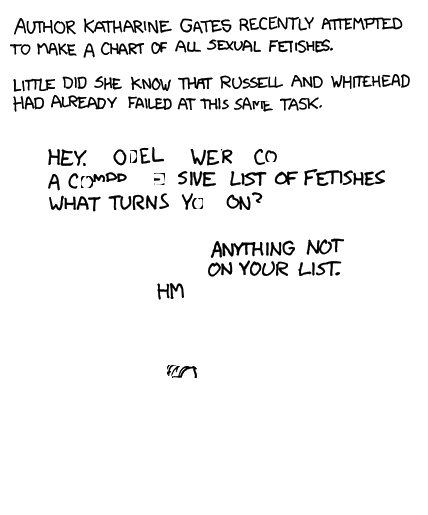 AUTHOR KATHARINE GATES RECENTLY ATTEMPTED
TO MAKE A CHART OF ALL SEXUAL FETISHES.
LITTLE DID SHE KNOW THAT RUSSELL AND WHITEHEAD
HAD ALREADY FAILED AT THIS SAME TASK.
HEY.
A SIVE LIST OF FETISHES
WHAT TURNS ON?
ANYTHING NOT
ON YOUR LIST.
HM